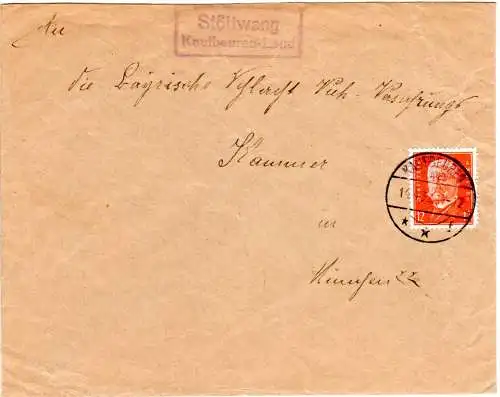 Stöttwang
Kaufbeuren-Land
An
die Bayrische Schlacht Vieh-Versichrungs
Kammer
in
München 22
KAUFBEUREN
12